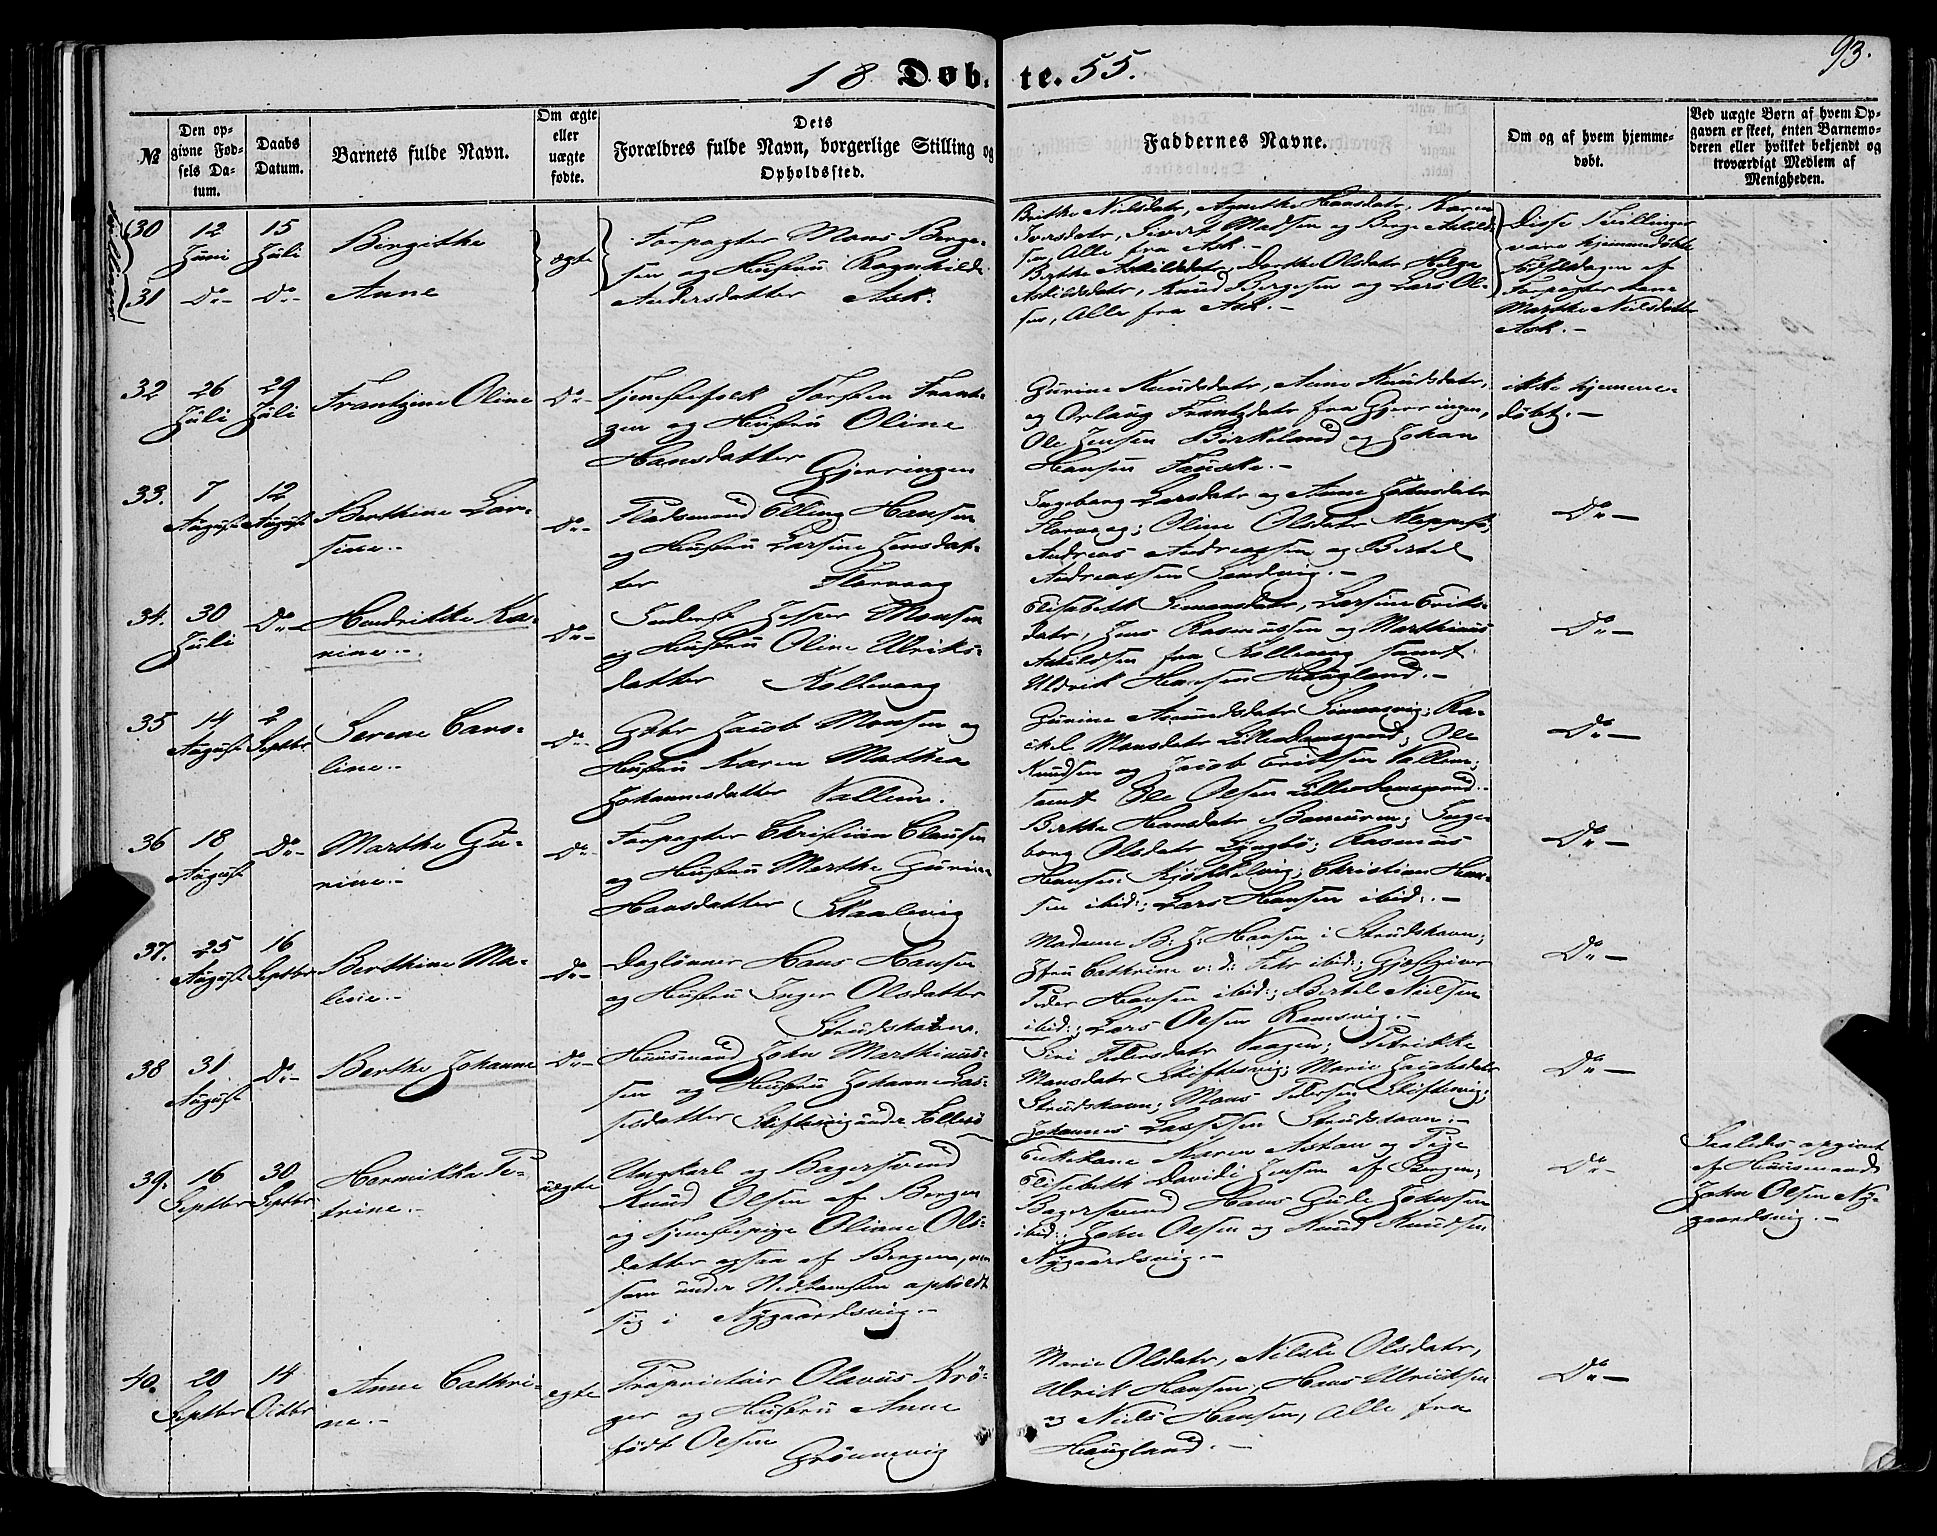 93.
18 Døb-te. 55.
№
Den opgivne Fødsels Datum.
Daabs Datum.
Barnets fulde Navn.
Om ægte eller uægte fødte.
Dets Forældres fulde Navn, borgerlige Stilling og Opholdssted.
Faddernes Navne.
Om og af hvem hjemmedøbt.
Ved uægte Børn af hvem Opgaven er skeet, enten Barnemoderen eller hvilket bekjendt og troværdigt Medlem af Menigheden.
Tvillinger
30
12 Juni
15 Juli
Bergithe
ægte
Forpagter Mons Berge-
sen og Hustru Ragnhilde
Andersdatter Ask.
Brithe Nielsdatr, Agnethe Hansdatr, Karen
Iversdatr, Sivert Madsen og Berge Askild-
sen, Alle fra Ask.-
Disse Tvillinger
vare hjemmedøbte
Fødselsdagen af
Forpagterkone
Marthe Nielsdatter
Ask.-
31
Do-
Do-
Anne
Birthe Askildsdatr, Dorthe Olsdatr, Helga
Askildsdatr, Knud Bergesen og Lars Ol-
sen, Alle fra Ask.-
32
26 Juli
29 Juli
Frantzine Oline
Do-
Tjenestefolk Torsten Frant-
zen og Hustru Oline
Hansdatter Gjerringen
Gurine Knudsdatr, Anne Knudsdatr,
og Orlaug Frantzdatr fra Gjerringen,
Ole Jensen Birkeland og Johan
Hansen Fauske.-
ikke hjemme-
døbt.-
33.
7 August
12 August
Berthine Lar-
sine.-
Do-
Pladsmand Elling Hansen
og Hustru Larsine Jensdat-
ter Florvaag
Ingeborg Larsdatr og Anne Johnsdatr
Florvaag; Oline Olsdatr Kleppestø,
Andreas Andreassen og Bertel
Andreassen Sandvig.-
Do-
34.
30 Juli
Do-
Hendrikke Ka-
rine.-
Do-
Inderst Jesper Monsen
og Hustru Oline Ulriks-
datter Kollevaag
Elisabeth Simonsdatr, Larsine Eriks-
datr, Jens Rasmussen og Marthinus
Askildsen fra Kollevaag samt
Uldrik Hansen Haugland.-
Do-
35
14 August
2 Septbr
Serene Caro-
line.-
Do-
Gbr Jacob Monsen og
Hustru Karen Mathea
Johannesdatter Vallem.
Gurine Amundsdatr Simonsvig; Ra-
chel Monsdatr LilleDamsgaard; Ole
Knudsen og Jacob Eriksen Vallem;
samt Ole Olsen LilleDamsgaard.-
Do-
36
18 August
Do-
Marthe Gu-
rine.-
Do-
Forpagter Christian Clausen
og Hustru Marthe Gurine
Hansdatter Skaalevig
Birthe Hansdatr; Inge-
borg Olsdatr Lyngbø; Rasmus
Hansen Kjøkkelvig; Christian Han-
sen ibid:; Lars Hansen ibid:.-
Do-
37.
25 August
16 Septbr
Berthine Ma-
lene.-
Do-
Daglønner Hans Hansen
og Hustru Inger Olsdatter
Strudshavn.
Madame B: J: Hansen i Strudshavn;
Jfru Cathrine v: d: Fehr ibid:; Gjæstgiver
Peder Hansen ibid:; Bertel Nielsen
ibid:; Lars Olsen Ramsvig.-
Do-
38
31 August
Do-
Berthe Johanne
Do-
Huusmand John Marthinus-
sen og Hustru Johanne Las-
sesdatter Skiftesvig under Follesø
Siri Pedersdatr Vaagen; Petrikke
Monsdatr Skiftesvig; Marie Jacobsdatr
Strudshavn; Mons Pedersen Skiftesvig;
Johannes Lassesen Strudshavn.-
Do-
39.
16 Septbr
30 Septbr
Hermikka Pe-
trine.-
uægte
Ungkarl og Bagersvend
Knud Olsen af Bergen
og Tjenestepige Oliane Ols-
datter ogsaa af Bergen, men
som under Nedkomsten opholdt
sig i Nygaardsvig.-
Enkekone Karen Askan og Pige
Elisabeth Davida Jensen af Bergen;
Bagersvend Hans Gule Johnsen
ibid:, John Olsen og Knud Knudsen
Nygaardsvig.-
Do-
Saaledes opgivet
af Huusmand
John Olsen Ny-
gaardsvig.-
40.
20 Septbr
14 Octbr
Anne Cathri-
ne.-
ægte
Proprietair Olavus Krö-
ger og Hustru Anne
født Olsen
Grønnevig
Marie Olsdatr, Nilsle Olsdatr,
Ulrik Hansen, Hans Ulriksen
og Niels Hansen, Alle fra
Haugland.-
Do-